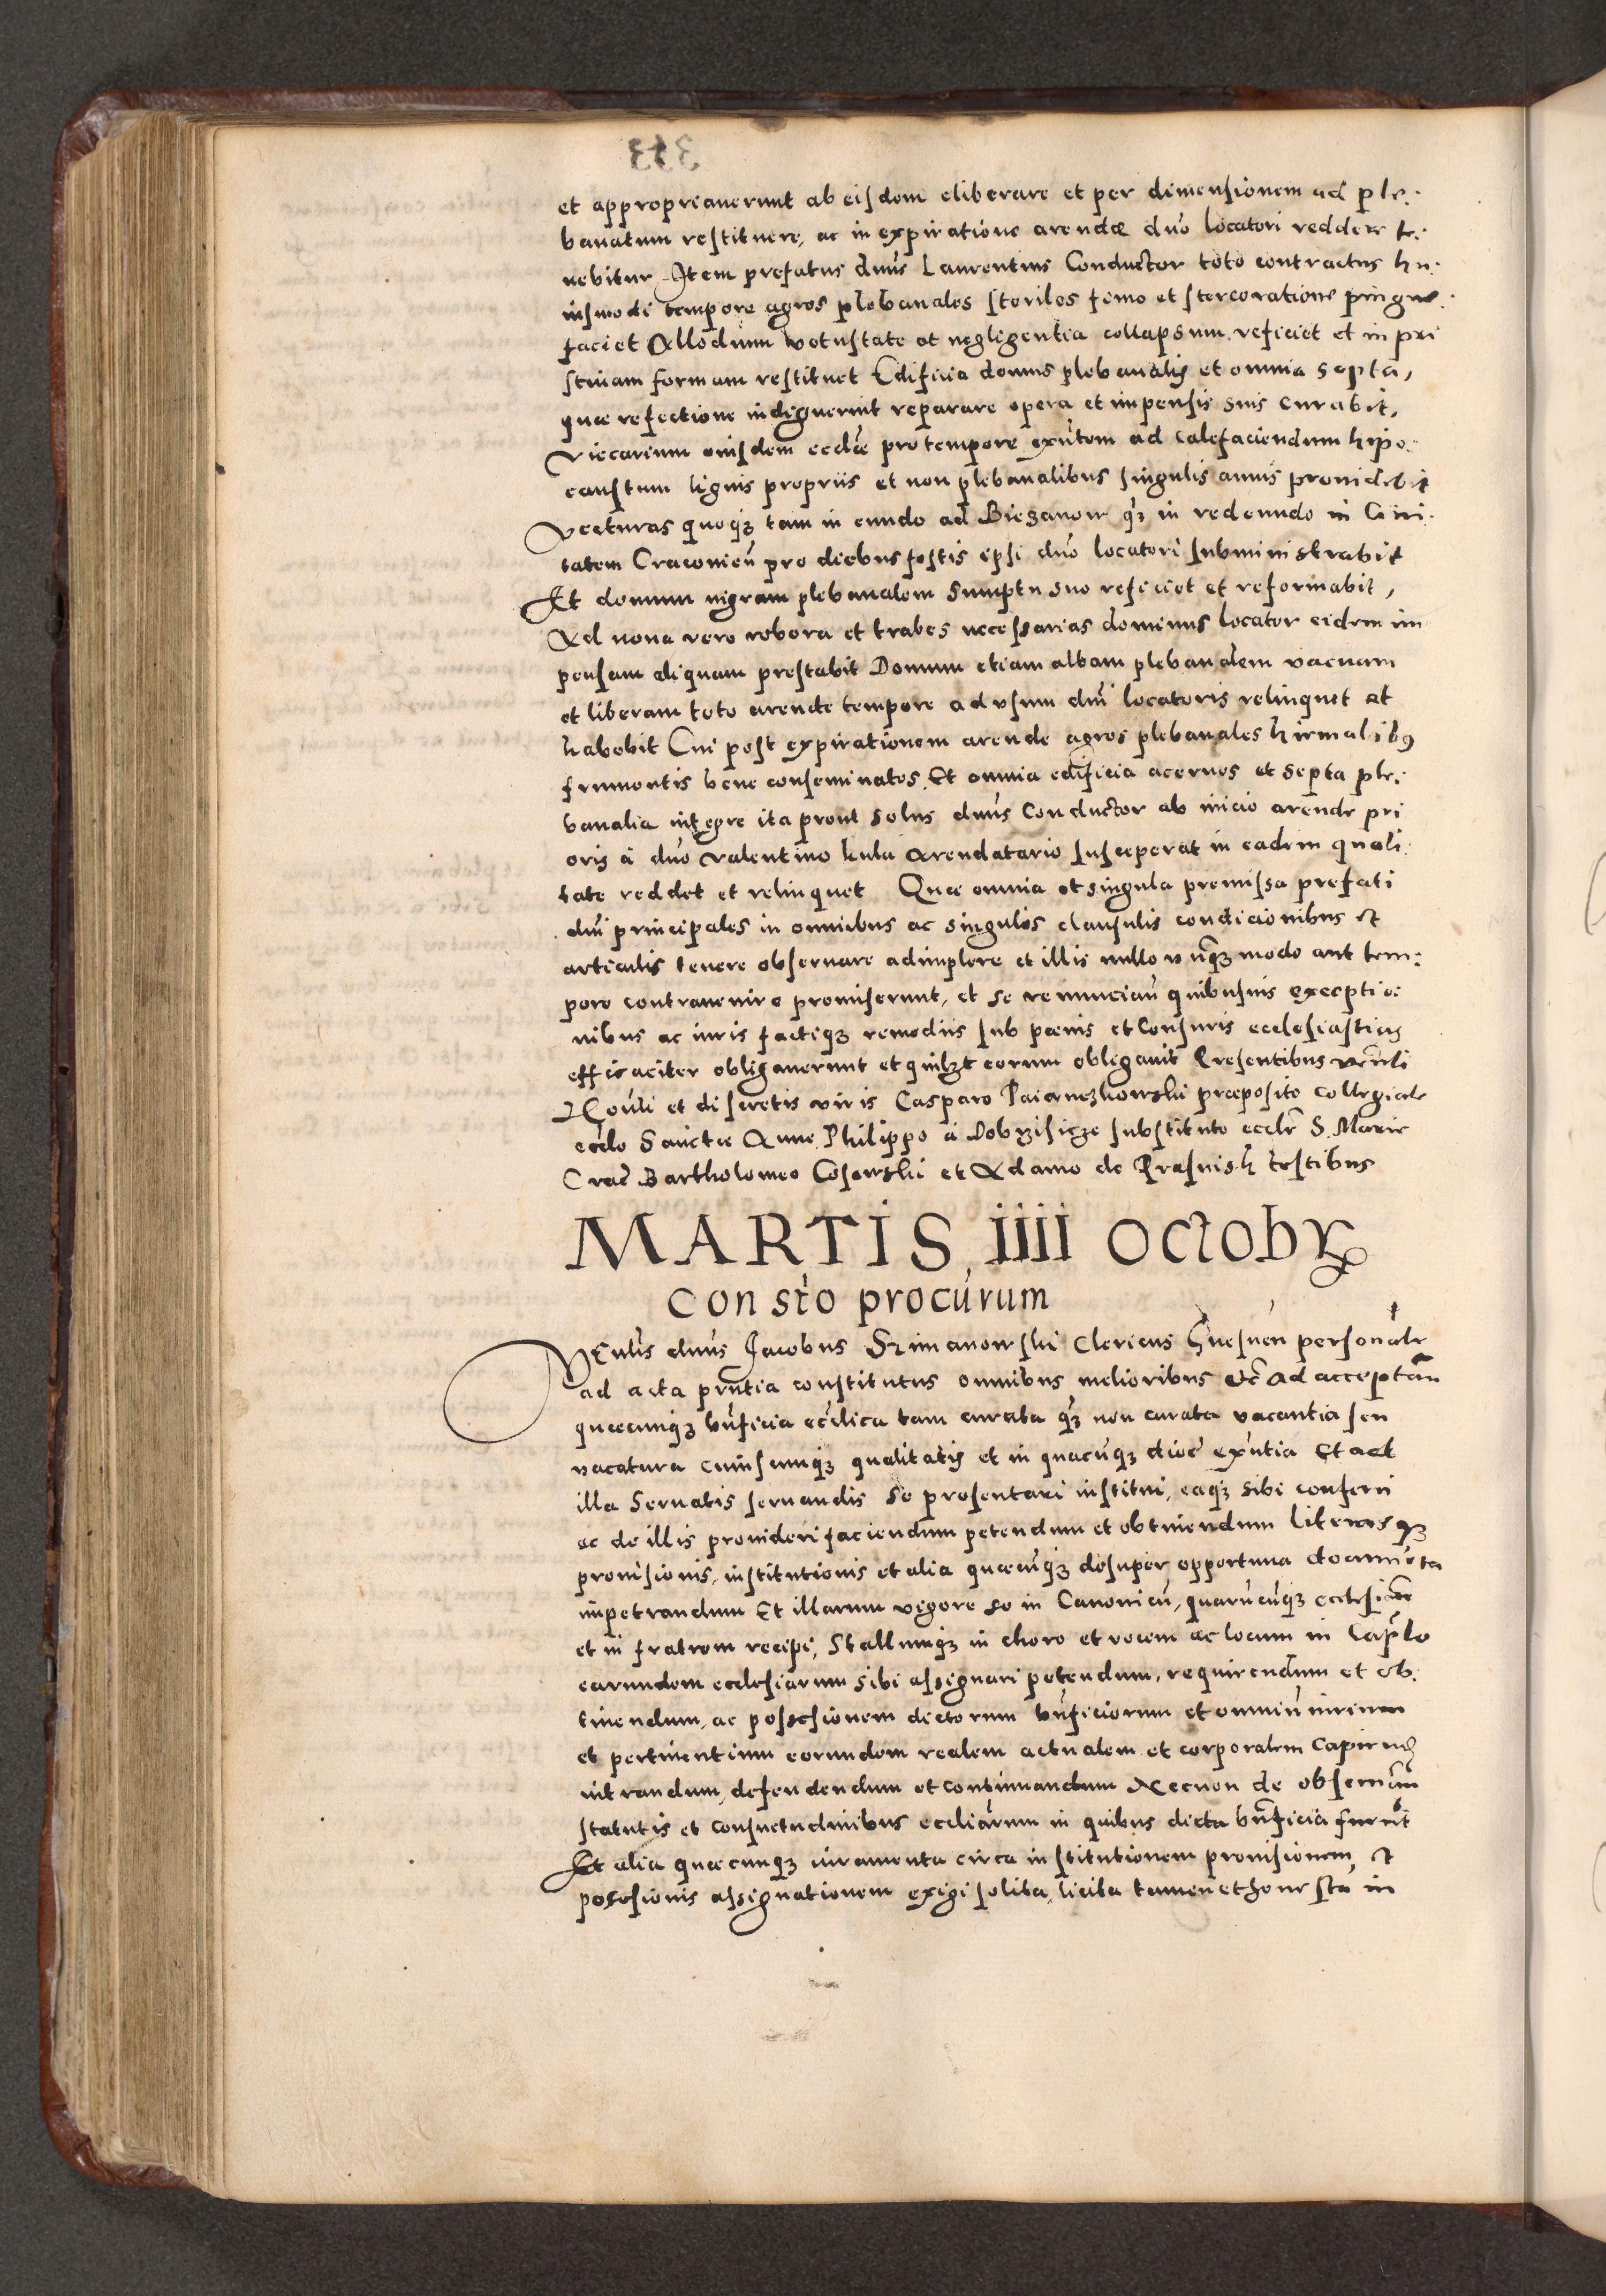 et appropriauerunt ab eisdem eliberare et per dimensionem ad ple:
banatum restituere, ac in expiratione arendæ dño locatori reddere te:
nebitur Item prefatus dnus Laurentius Conductor toto contractus hu:
iusmodi tempore agros plebanales steriles fimo et stercoratione pingue:
faciet Allodium vetustate et negligentia collapsum reficiet et in pri
stinam formam restituet Edificia domus plebanalis et omnia septa,
quæ refectione indiguerint reparare opera et impensis suis curabit,
Viccarium eiusdem ecclæ pro tempore exñtem ad calefaciendum hipo:
caustum lignis propriis et non plebanalibus singulis annis prouidebit
Vecturas quoqꝫ tam in eundo ad Biezanow qꝫ in redeundo in Ciui:
tatem Cracouieñ pro diebus festis ipsi dño locatori subministrabit
Et domum nigram plebanalem sumptu suo reficiet et reformabit,
Ad noua vero robora et trabes necessarias dominus locator eidem im
pensam aliquam prestabit Domum etiam albam plebanalem vacuam
et liberam toto arende tempore ad vsum dni locatoris relinquet et
habebit Cui post expirationem arende agros plebanales hiemalibꝰ
frumentis bene conseminatos, Et omnia edificia aceruos et septa ple:
banalia integre ita prout solus dnus Conductor ab inicio arende pri
oris á dño Valentino kula Arendatario susceperat in eadem quali:
tate reddet et relinquet Quæ omnia et singula premissa prefati
dni principales in omnibus ac singulis clausulis condicionibus et
articulis tenere obseruare adimplere et illis nullo vnqꝫ modo aut tem:
pore contrauenire promiserunt, et se renunciañ quibusuis exceptio:
nibus ac iuris factiqꝫ remediis sub pœnis et Censuris ecclesiasticis
efficaciter obligauerunt et quilꝫt eorum obligauit Presentibus venli
Nobili et discretis viris Casparo præposito Collegiate
eccle Sanctæ Anne Philippo á substituto eccle S. Marie
Crac Bartholomeo et Adamo de Prasnish testibus
MARTIS IIII OCTOBꝶ
Consto procurum
Venlis dnus Jacobus Szimanowski Clericus Gnesneñ personalr
ad acta pñtia constitutus omnibus melioribus etc Ad acceptañ
quæcunqꝫ bñficia ecclica tam curata qꝫ non curata vacantia seu
vacatura cuiuscunqꝫ qualitatis et in quacũqꝫ dioc exñtia Et ad
illa seruatis seruandis se presentari institui, eaqꝫ sibi conferri
ac de illis prouideri faciendum petendum et obtinendum literasqꝫ
prouisionis, institutionis et alia quæcũqꝫ desuper opportuna documẽta
impetrandum Et illarum vigore se in Canonicũ, quarũcũqꝫ ecclesiarũ
et in fratrem recipi, Stallumqꝫ in choro et vocem ac locum in Caplo
earundem ecclesiarum sibi assignari petendum, requirendum et ob:
tinendum, ac possesionem dictorum bñficiorum et omniũ iurium
et pertinentium eorundem realem actualem et corporalem Capiend
intrandum, defendendum et continuandum Necnon de obseruañ
statutis et consuetudinibus eccliarum in quibus dicta bñficia fuerit
Et alia quæcunqꝫ iuramenta circa institutionem prouisionem, et
posesionis assignationem exigi solita, licita tamen et honesta in